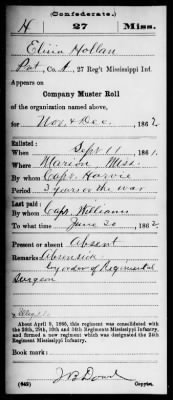 (Confederate.)
H 27 Miss.
Elixin Hollan
Pvt, Co. A, 27 Reg't Mississippi Inf.
Appears on
Company Muster Roll
of the organization named above,
for Nov & Dec, 1862.
Enlisted:
When Sept 11, 1861.
Where Marion, Miss.
By whom Capt. Harvie
Period 3 years or the war
Last paid:
By whom Capt. Williams
To what time June 30, 1862.
Present or absent Absent
Remarks: Absensick
by order of Regimental
Surgeon
About April 9, 1865, this regiment was consolidated with
the 29th, 30th and 34th Regiments Mississippi Infantry,
and formed a new regiment which was designated the 24th
Regiment Mississippi Infantry.
Book mark:
(642) Copyist.